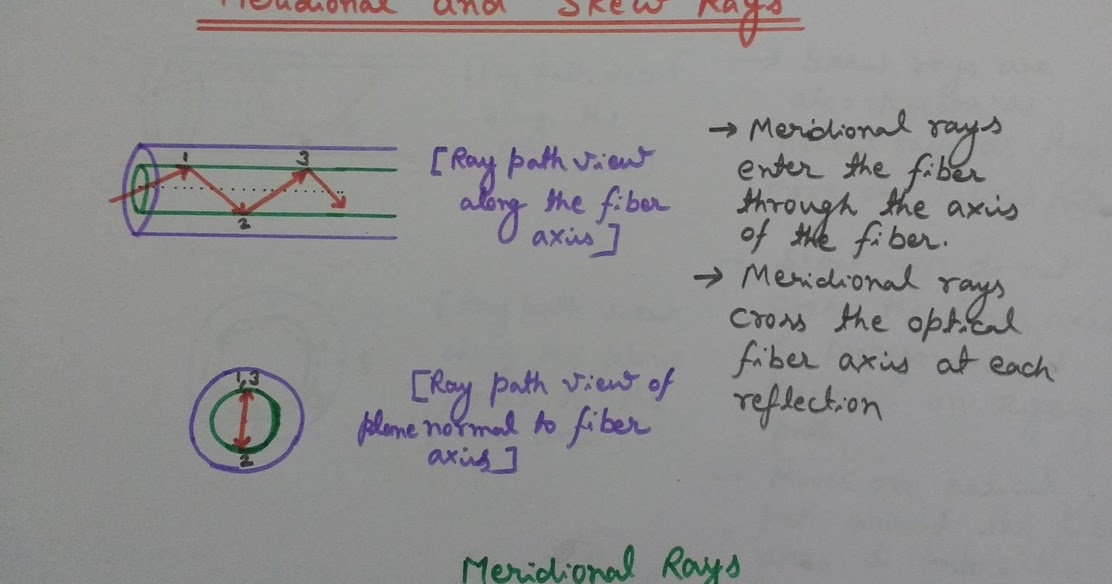 Meridional and Skew Rays
1
3
2
[Ray path view
along the fiber
axis]
→ Meridional rays
enter the fiber
through the axis
of the fiber.
→ Meridional rays
cross the optical
fiber axis at each
reflection
1,3
2
[Ray path view of
plane normal to fiber
axis]
Meridional Rays